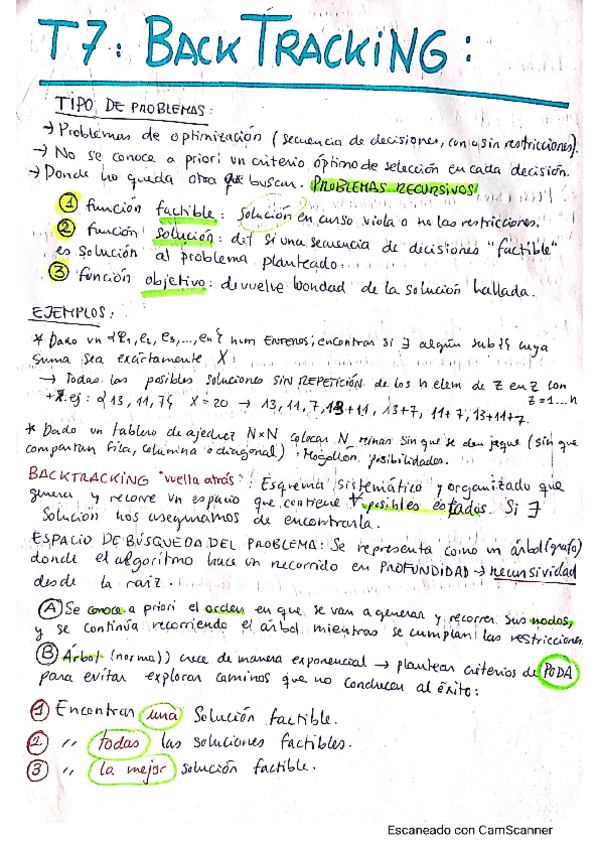 T7: BACKTRACKING:
TIPO DE PROBLEMAS:
→ Problemas de optimización (secuencia de decisiones, con o sin restricciones).
→ No se conoce a priori un criterio óptimo de selección en cada decisión.
→ Donde no queda otra que buscar. PROBLEMAS RECURSIVOS
① función factible: solución en curso viola o no las restricciones.
② función solución: det si una secuencia de decisiones "factible"
es solución al problema planteado.
③ función objetivo: devuelve bondad de la solución hallada.
EJEMPLOS:
* Dado un {e1, e2, e3, ..., en} num ENTEROS; encontrar si ∃ algún sub{} cuya
suma sea exactamente X:
→ Todas las posibles soluciones SIN REPETICIÓN de los n elem de z en z con
z=1...n
ej: {13, 11, 7} X=20 → 13, 11, 7, 13+11, 13+7, 11+7, 13+11+7.
* Dado un tablero de ajedrez N×N colocar N reinas sin que se den jaque (sin que
compartan fila, columna o diagonal): Mogollon posibilidades.
BACKTRACKING "vuelta atrás": Esquema sistemático y organizado que
genera y recorre un espacio que contiene ∀ posibles estados. Si ∃
solución nos aseguramos de encontrarla.
ESPACIO DE BÚSQUEDA DEL PROBLEMA: Se representa como un árbol (grafo)
donde el algoritmo hace un recorrido en PROFUNDIDAD → recursividad
desde la raiz.
Ⓐ Se conoce a priori el orden en que se van a generar y recorrer sus nodos,
y se continúa recorriendo el árbol mientras se cumplan las restricciones.
Ⓑ Árbol (normal) crece de manera exponencial → plantear criterios de PODA
para evitar explorar caminos que no conducen al éxito:
① Encontrar una solución factible.
② ,, todas las soluciones factibles.
③ ,, la mejor solución factible.
Escaneado con CamScanner